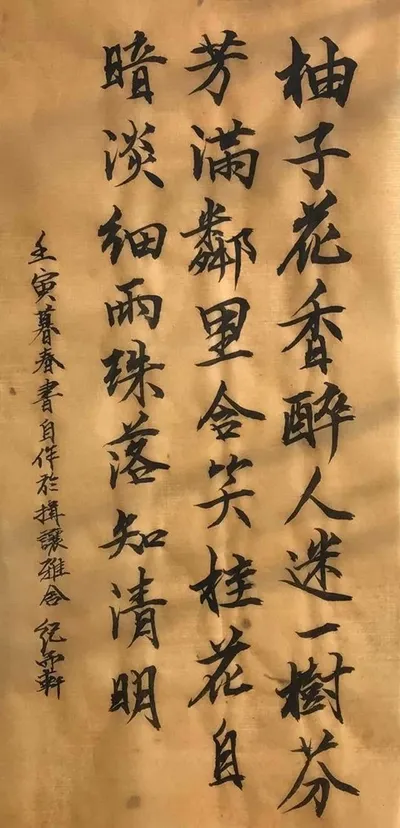 柚子花香醉人迷一樹芬
芳滿鄰里含笑桂花自
暗淡細雨珠落知清明
壬寅暮春書自作於揖讓雅舍 紀雨軒